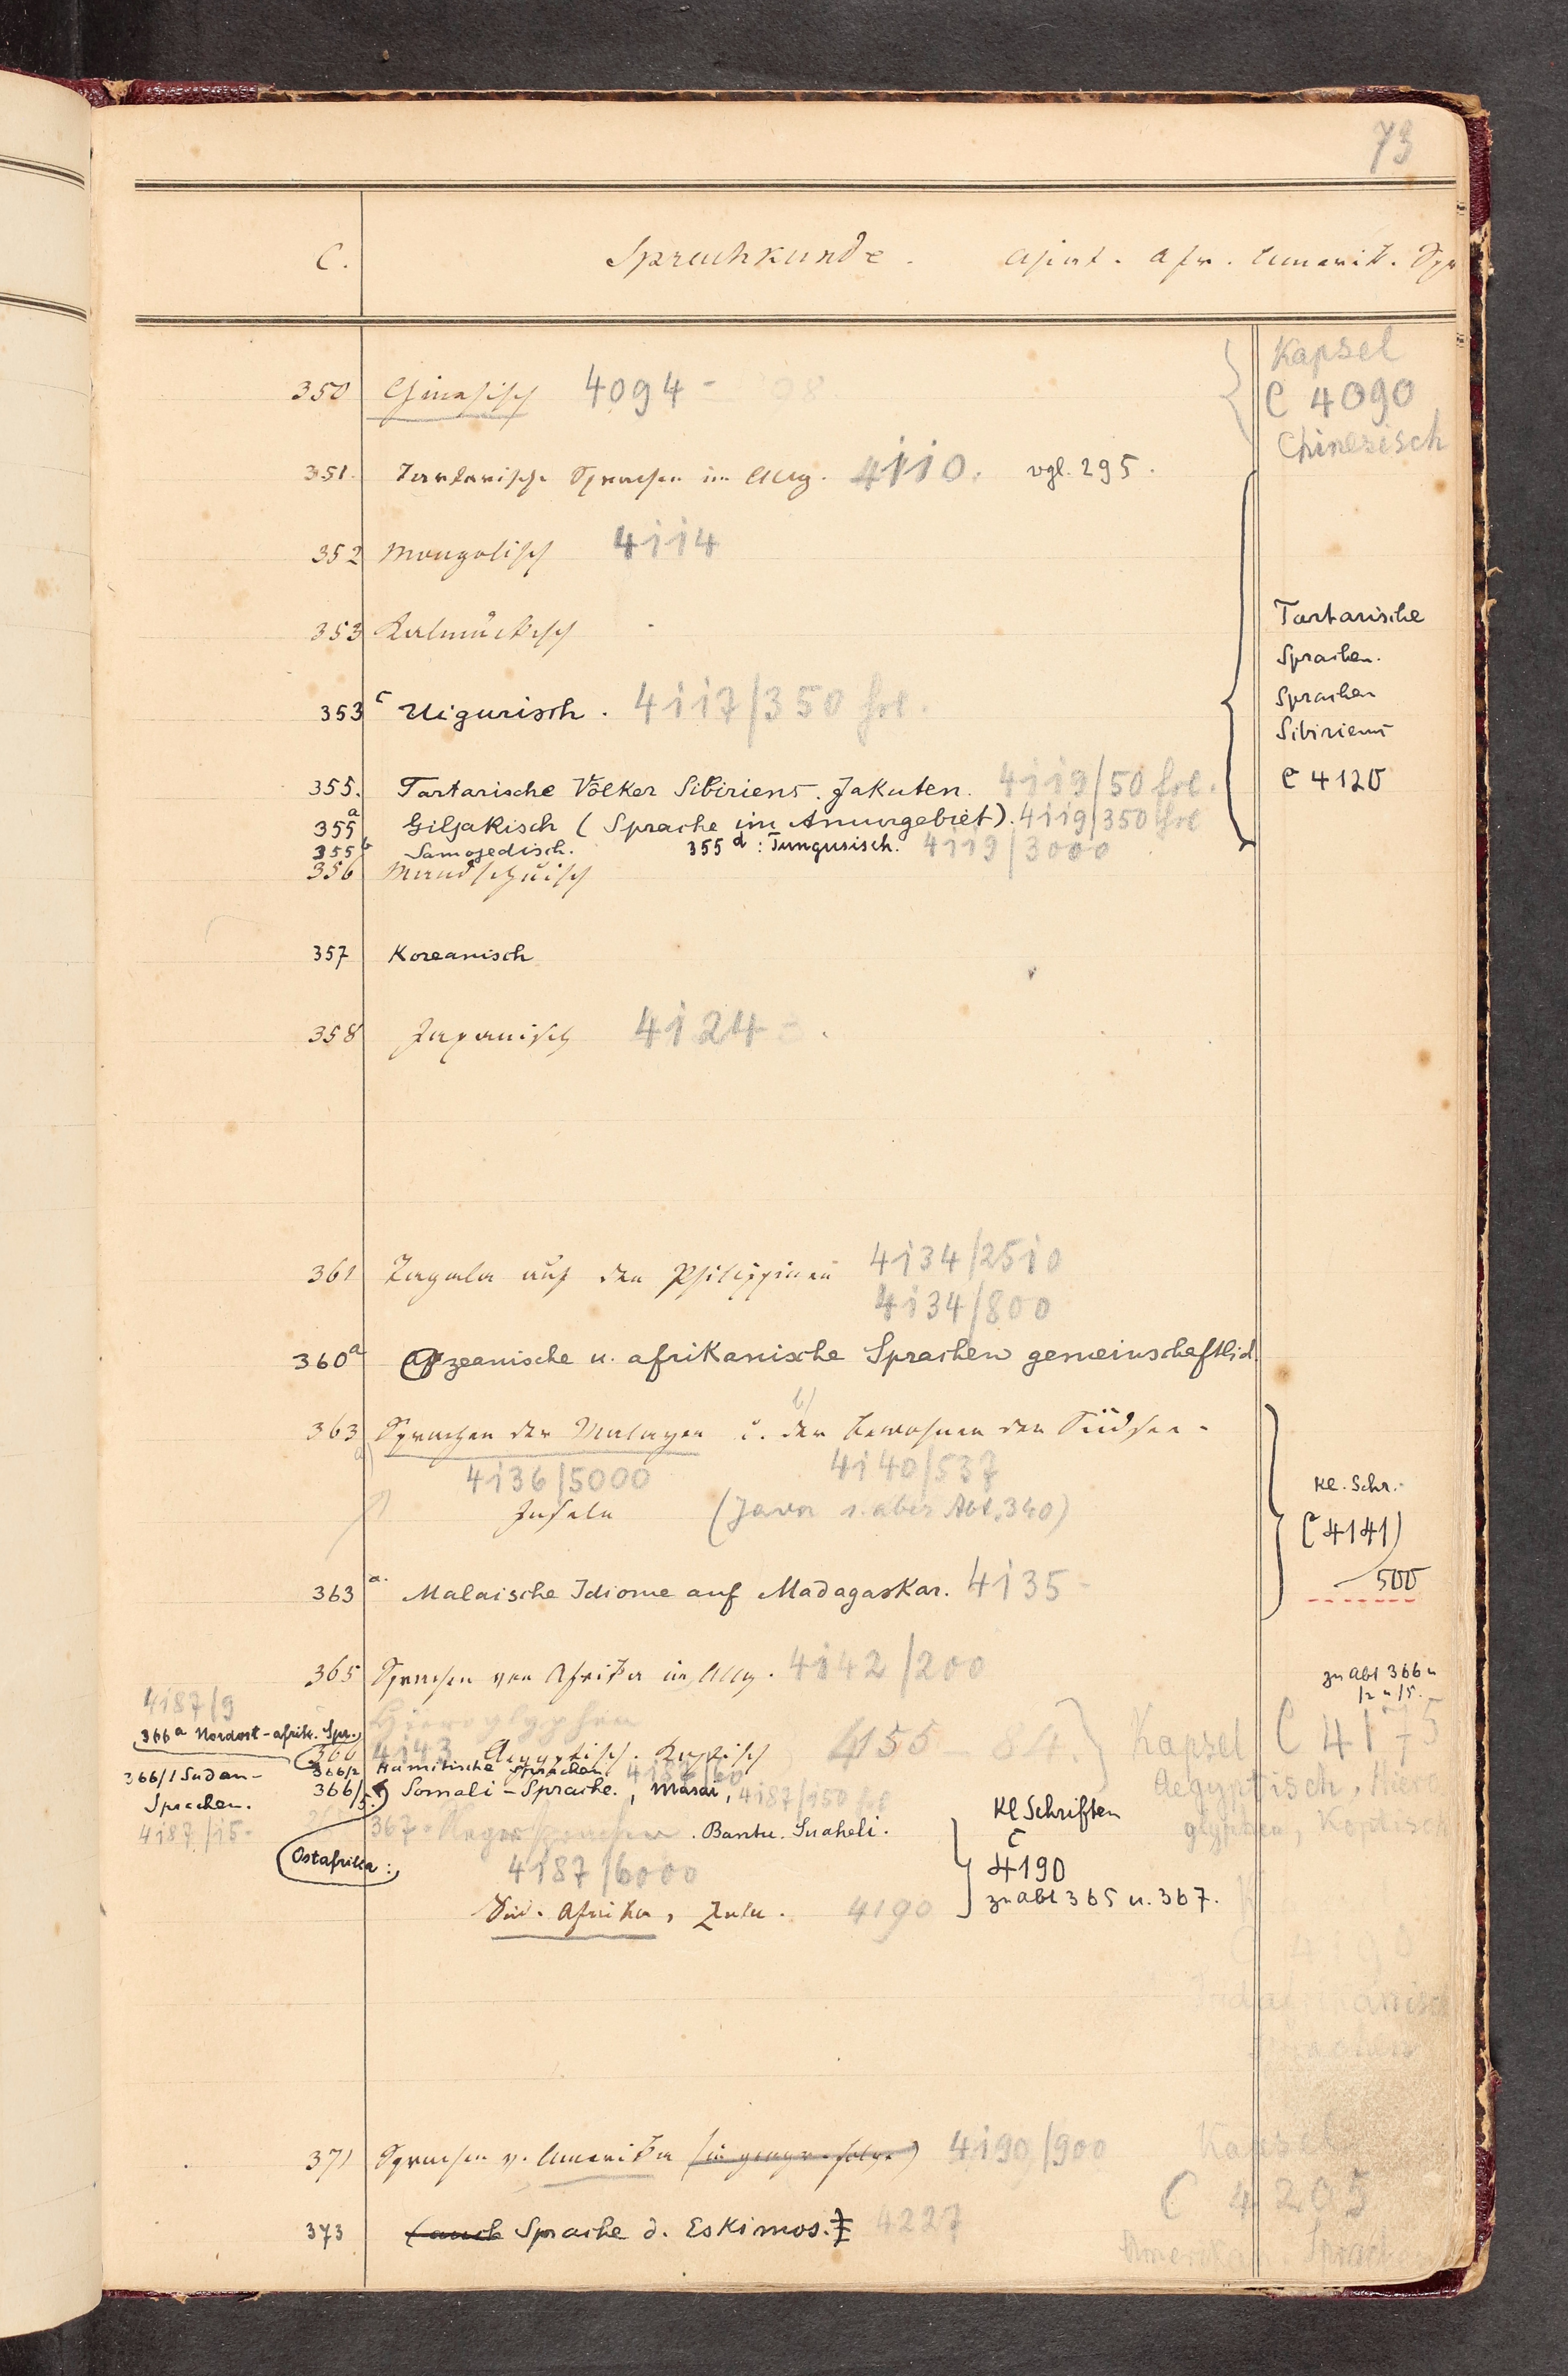 73
C. Sprachkunde. Asiat. Afr. Amerik. Spr
Kapsel
C 4090
Chinesisch
350 Chinesisch 4094 -
351. Tartarische Sprachen im Allg. 4110. vgl. 295.
352 Mongolisch 4114
353 Kalmückisch
353c Uigurisch. 4117/350 frl.
Tartarische
Sprachen.
Sprachen
Sibiriens
C 4120
355. Tartarische Völker Sibiriens. Jakuten. 4119/50 frl.
355a Giljakisch (Sprache im Amurgebiet). 4119/350 frl
355b Samojedisch. 355d: Tungusisch. 4119/3000
356 Mandschuisch
357 Koreanisch
358 Japanisch 4124
361 Tagala auf den Philippinen 4134/2510
4134/800
360a Ozeanische u. afrikanische Sprachen gemeinschaftlich.
b)
363 Sprachen der Malayen u. der Bewohner der Südsee-
4136/5000 4140/537
Inseln (Java s. aber Abt. 340)
Kl. Schr.
C 4141)
500
363a. Malaische Idiome auf Madagaskar. 4135-
365 Sprachen von Afrika im Allg. 4142/200
zu Abt 366 u
/2 u /5.
4187/9
Hieroglyphen
366a Nordost-afrik. Spr.
366 4143 Aegyptisch. Koptisch 4155 - 84. Kapsel C 4175
366/2 Hamitische Sprachen. 4186/60
Aegyptisch, Hiero
366/1 Sudan-
Sprachen.
4187/15-
366/5. Somali-Sprache., Masai, 4187/150 frl
glyphen, Koptisch
367. Negersprachen. Bantu. Suaheli.
Ostafrika:
4187/6000
Kl Schriften
C
4190
zu Abt 365 u. 367.
Süd-Afrika, Zulu. 4190
C 4190
Südafrikanisch
Sprachen
371 Sprachen v. Amerika (in geogr. Folge) 4190/900
Kapsel
C 4205
373 (auch Sprache d. Eskimos. 4227
Amerikan. Sprachen